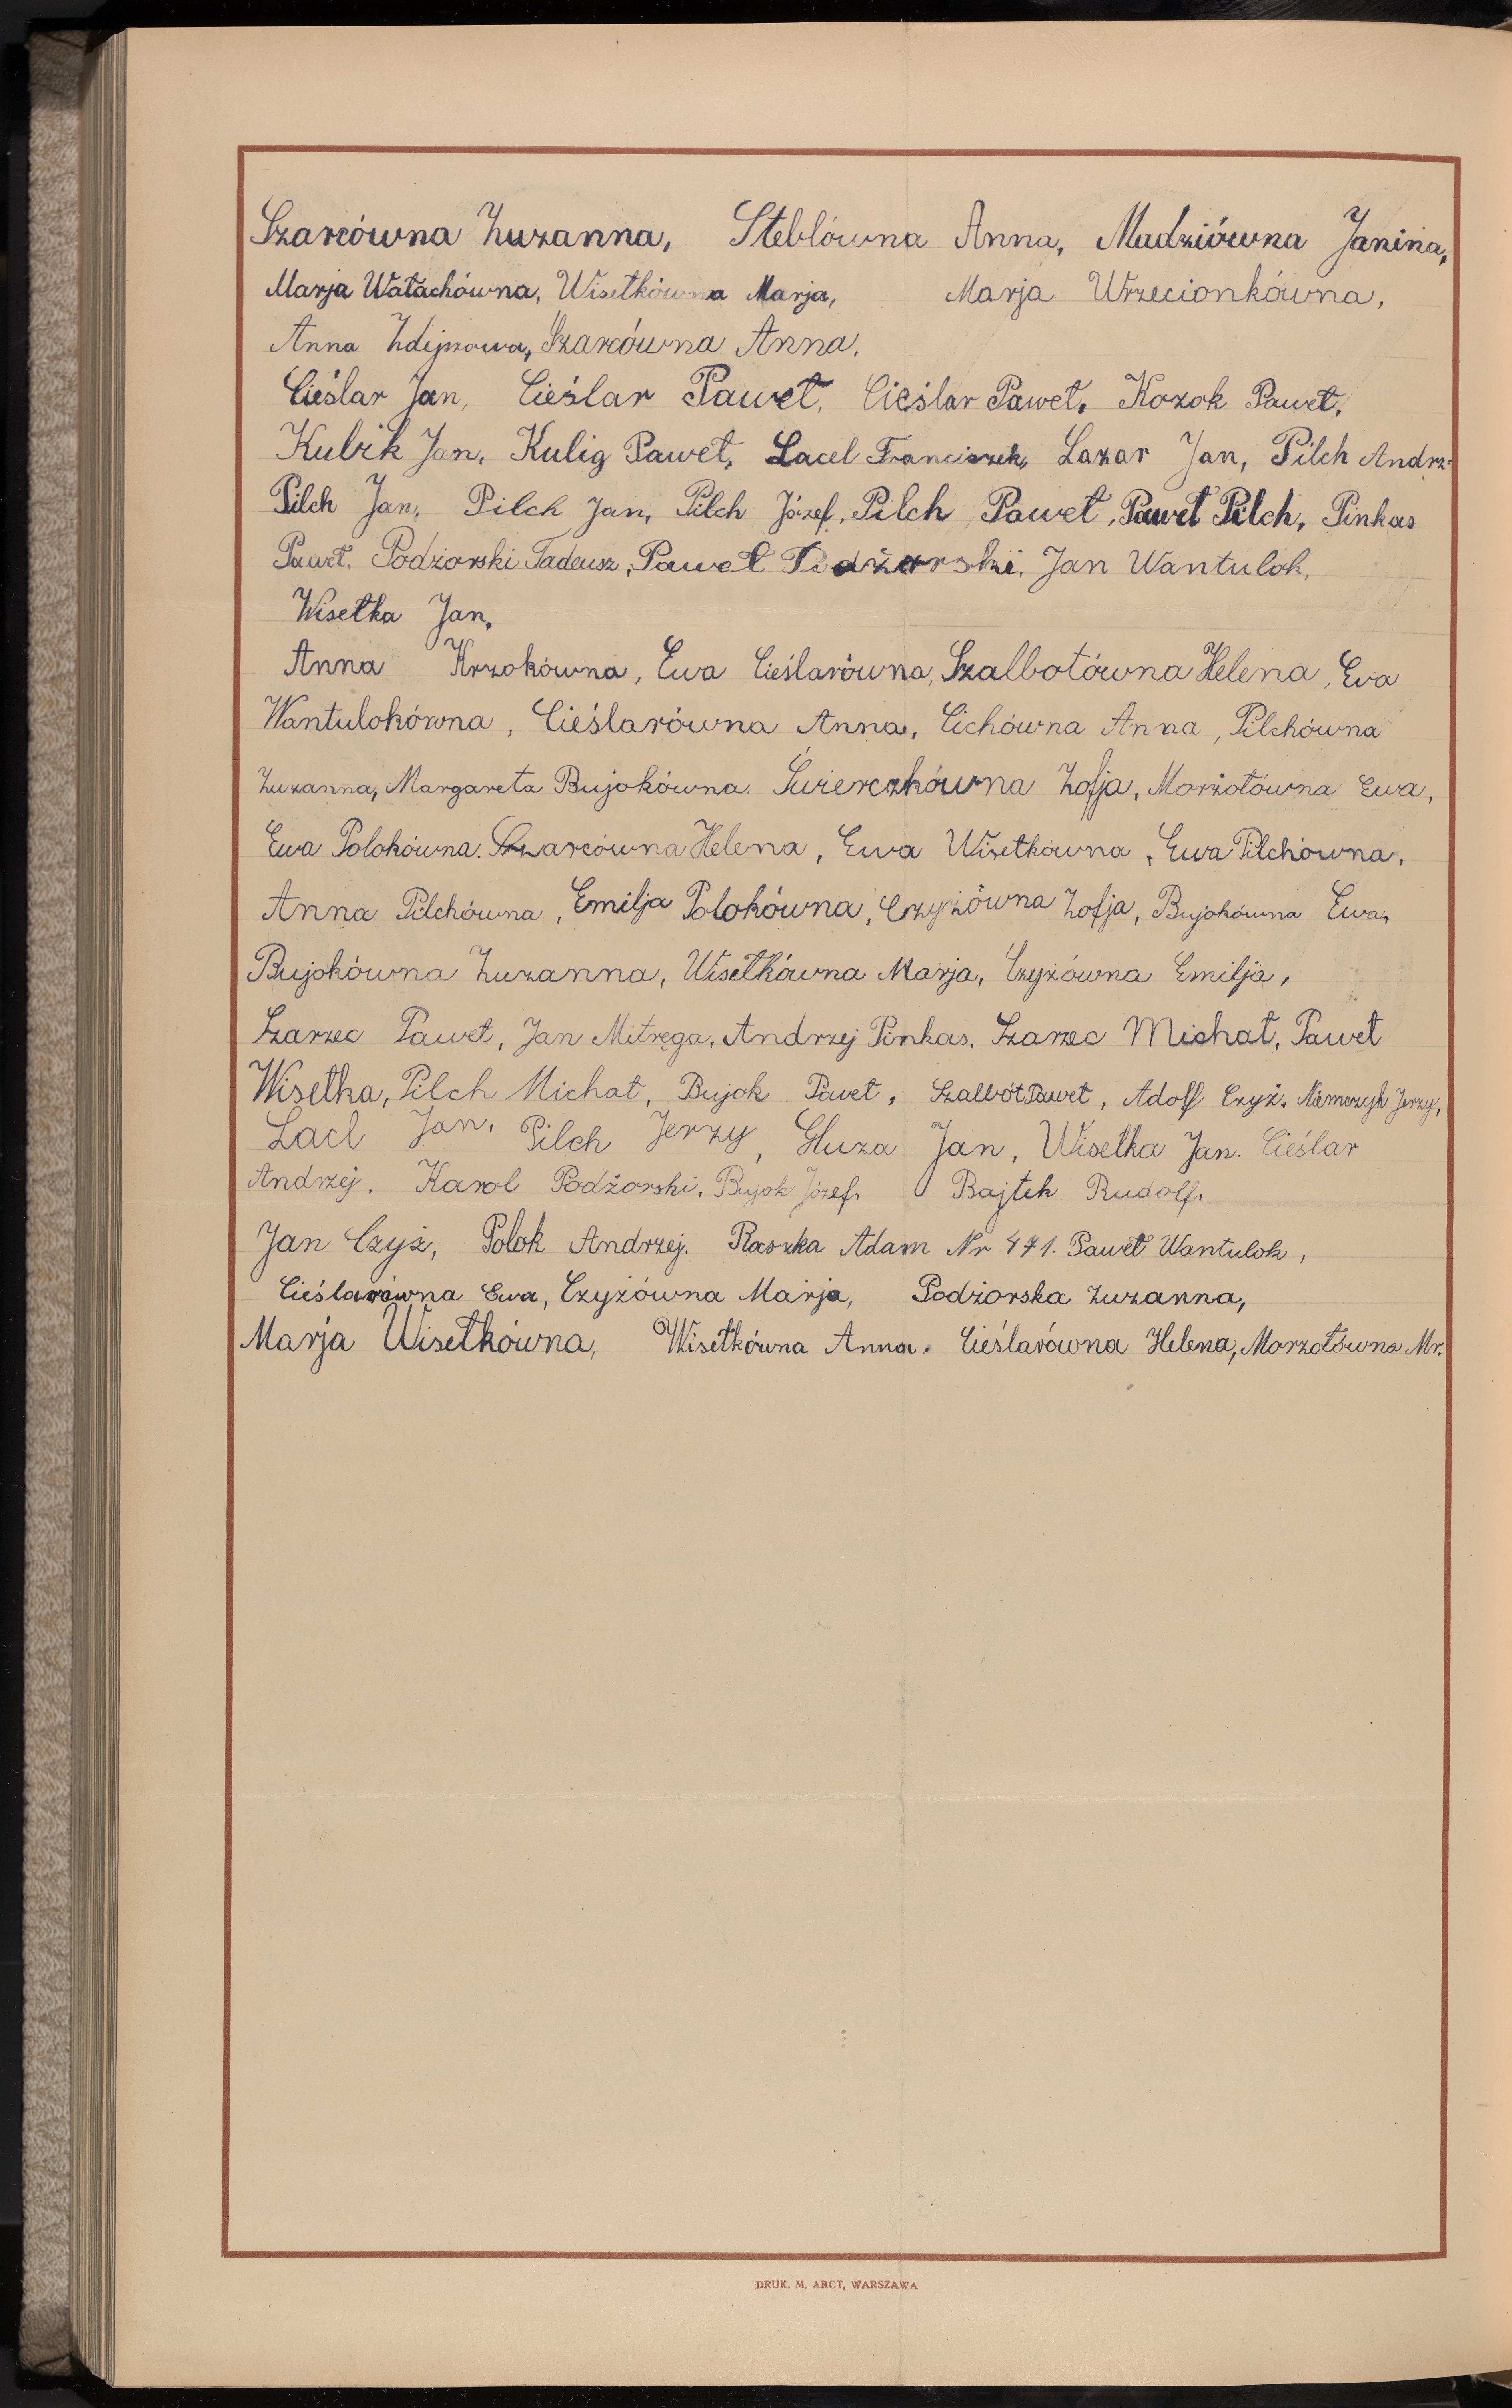 Szarcówna Zuzanna, Steblówna Anna, Madziówna Janina,
Marja Wałachówna, Wisełkówna Marja, Marja Wrzecionkówna,
Anna Zdejszowa, Szarcówna Anna.
Cieślar Jan, Cieślar Paweł, Cieślar Paweł, Kozok Paweł,
Kubik Jan, Kulig Paweł, Lacel Franciszek, Lazar Jan, Pilch Andrz.
Pilch Jan, Pilch Jan, Pilch Józef, Pilch Paweł, Paweł Pilch, Pinkas
Paweł, Podżorski Tadeusz, Paweł Podżorski, Jan Wantulok,
Wisełka Jan,
Anna Krzokówna, Ewa Cieślarówna, Szalbotówna Helena, Ewa
Wantulokówna, Cieślarówna Anna, Cichówna Anna, Pilchówna
Zuzanna, Margareta Bujokówna. Świerczkówna Zofja, Morżołówna Ewa,
Ewa Polokówna. Szarcówna Helena, Ewa Wisełkówna, Ewa Pilchówna,
Anna Pilchówna, Emilja Polokówna, Czyżówna Zofja, Bujokówna Ewa,
Bujokówna Zuzanna, Wisełkówna Marja, Czyżówna Emilja,
Szarzec Paweł, Jan Mitręga, Andrzej Pinkas, Szarzec Michał, Paweł
Wisełka, Pilch Michał, Bujok Paweł, Szalbót Paweł, Adolf Czyż, Niemczyk Jerzy,
Lacl Jan, Pilch Jerzy, Gluza Jan, Wisełka Jan. Cieślar
Andrzej, Karol Podżorski, Bujok Józef, Bajtek Rudolf,
Jan Czyż, Polok Andrzej. Raszka Adam Nr 471. Paweł Wantulok,
Cieślarówna Ewa, Czyżówna Marja, Podżorska Zuzanna,
Marja Wisełkówna, Wisełkówna Anna. Cieślarówna Helena, Morżołówna Mr.
DRUK. M. ARCT, WARSZAWA